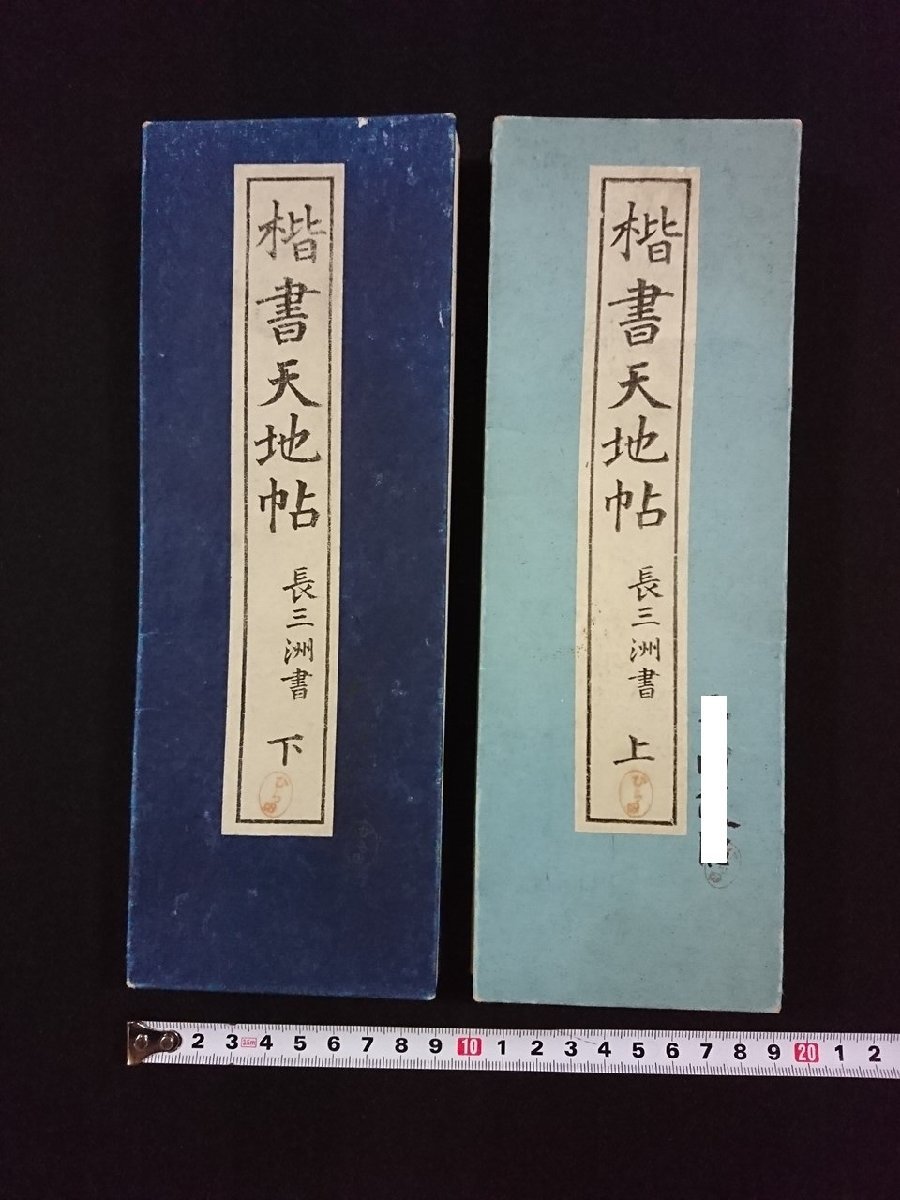 楷書天地帖 長三洲書 上
楷書天地帖 長三洲書 下
2 3 4 5 6 7 8 9 10 1 2 3 4 5 6 7 8 9 20 1 2